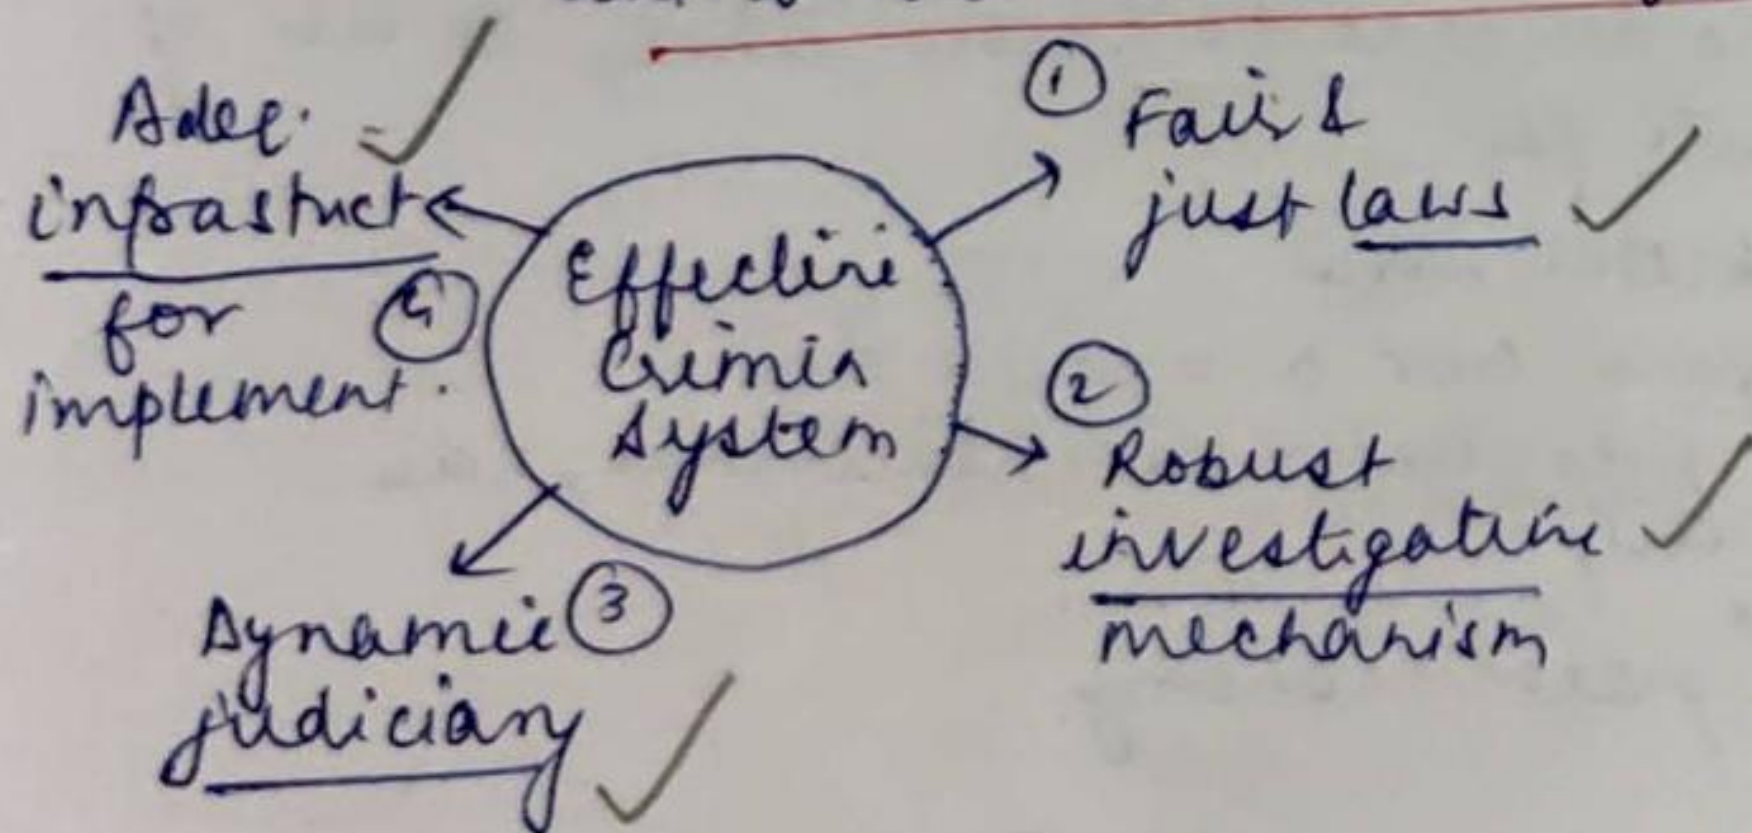 Effective
Crimin
system
①
Fair &
just laws
②
Robust
investigative
mechanism
Dynamic ③
judiciary
Adeq.
infrastruct
for ④
implement.